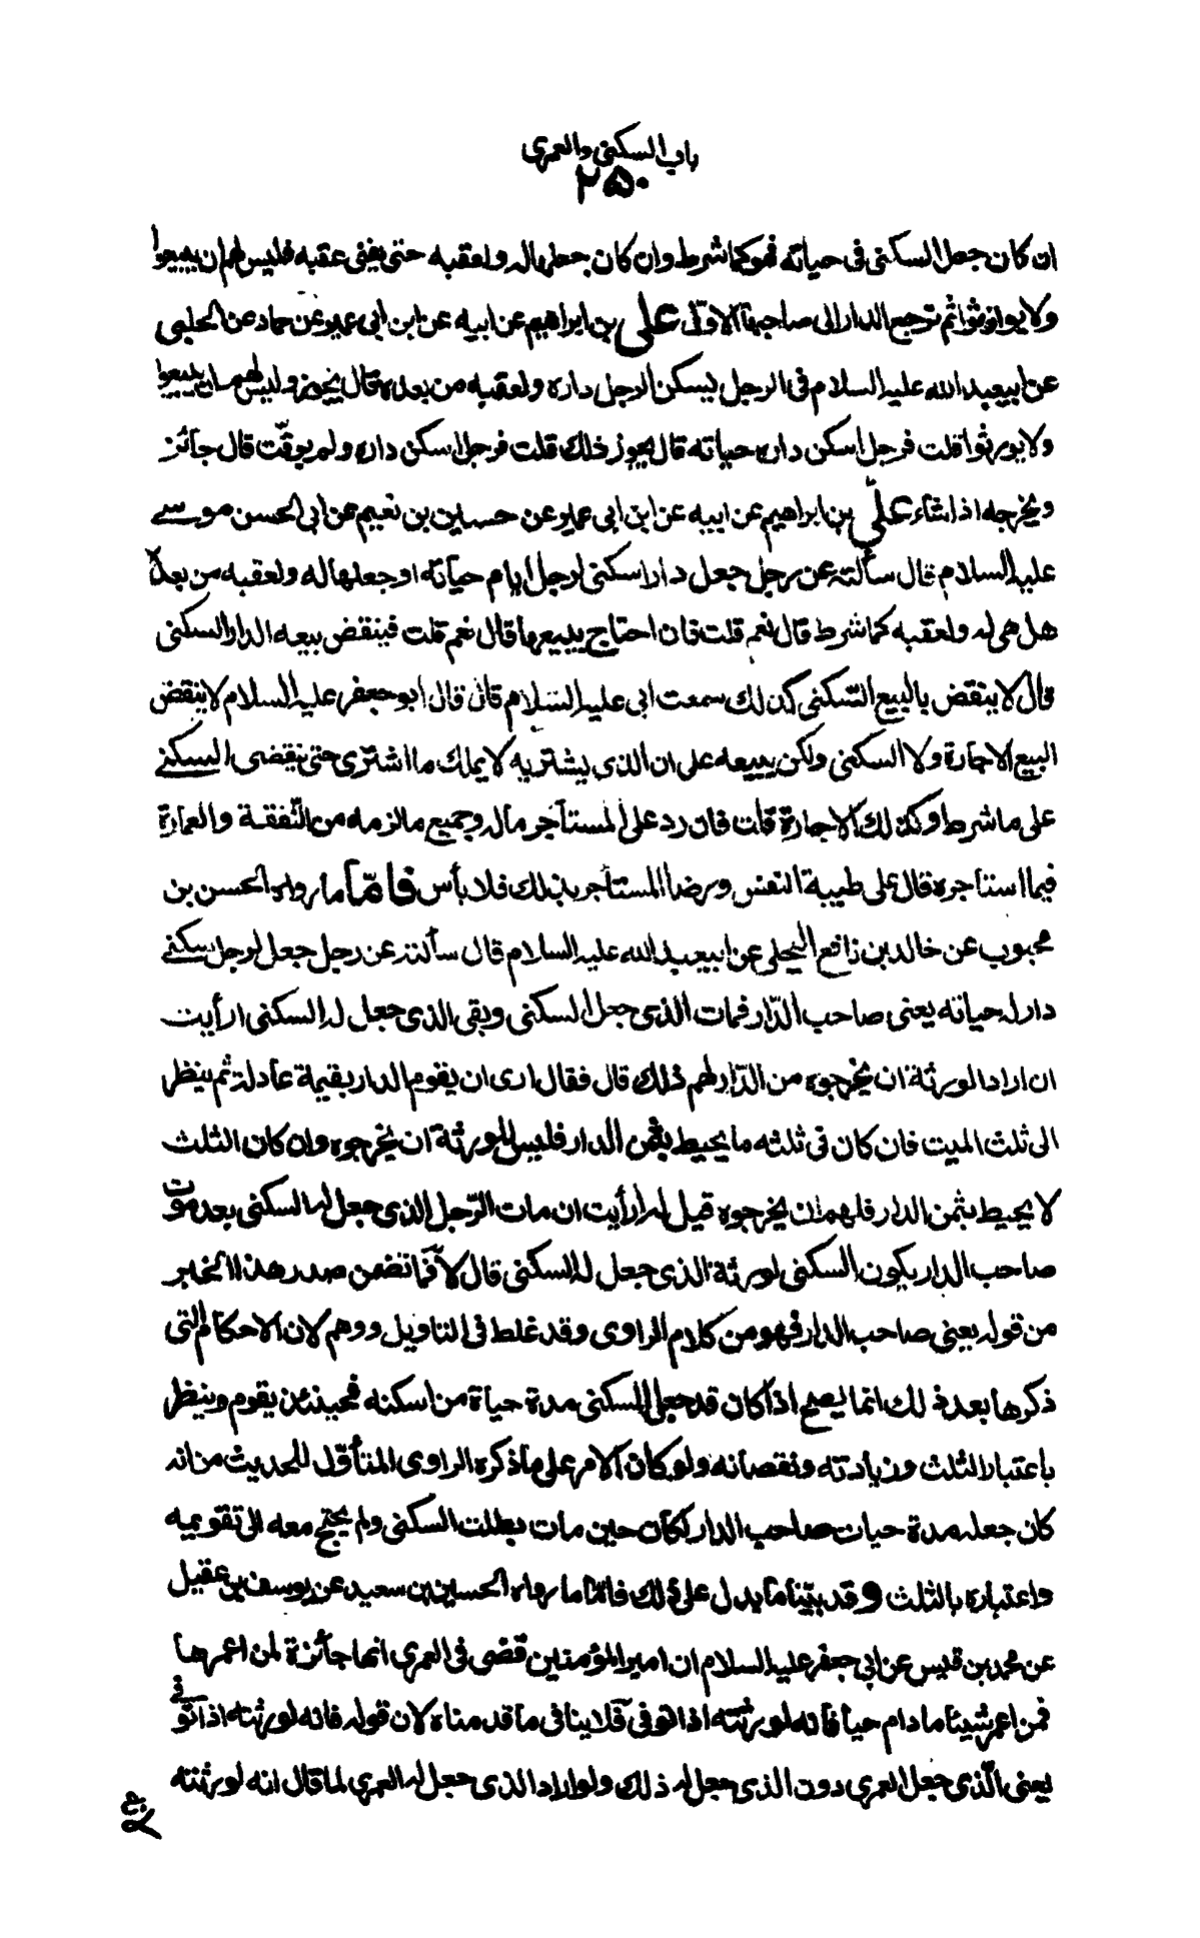 باب السكنى والعمرى
٢٥٠
ان كان جعل السكنى فى حياته فهو كما شرط وان كان جعلها له ولعقبه حتى يفنى عقبه فليس لهم ان يبيعوا
ولا يورثوا ثم ترجع الدار الى صاحبها الاول علي بن ابراهيم عن ابيه عن ابن ابى عمير عن حماد عن الحلبى
عن ابيعبد الله عليه السلام فى الرجل يسكن الرجل داره ولعقبه من بعده قال يجوز وليس لهم ان يبيعوا
ولا يورثوا قلت فرجل اسكن داره حياته قال يجوز ذلك قلت فرجل اسكن داره ولم يوقّت قال جائز
ويخرجه اذا شاء علّي بن ابراهيم عن ابيه عن ابن ابى عمير عن حسين بن نعيم عن ابى الحسن موسى
عليه السلام قال سألته عن رجل جعل دارا سكنى لرجل ايام حياته او جعلها له ولعقبه من بعده
هل هى له ولعقبه كما شرط قال نعم قلت فان احتاج يبيعها قال نعم قلت فينقض بيعه الدار السكنى
قال لا ينقض بالبيع السّكنى كذلك سمعت ابى عليه السّلام قال قال ابو جعفر عليه السلام لا ينقض
البيع الاجارة ولا السكنى ولكن يبيعه على ان الذى يشتريه لا يملك ما اشترى حتى ينقضى السكنى
على ما شرط وكذلك الاجارة قلت فان رد على المستأجر ماله وجميع ما لزمه من النّفقة والعمارة
فيما استاجره قال على طيبة النفس ورضا المستأجر بذلك فلا بأس فامّا ما رواه الحسن بن
محبوب عن خالد بن رافع البجلى عن ابيعبد الله عليه السلام قال سألته عن رجل جعل لرجل سكنى
دار له حياته يعنى صاحب الدّار فمات الذى جعل السكنى وبقى الذى جعل له السكنى ارأيت
ان اراد الورثة ان يخرجوه من الدّار لهم ذلك قال فقال ارى ان يقوم الدار بقيمة عادلة ثم ينظر
الى ثلث الميت فان كان فى ثلثه ما يحيط بثمن الدار فليس للورثة ان يخرجوه وان كان الثلث
لا يحيط بثمن الدار فلهم ان يخرجوه قيل له ارأيت ان مات الرّجل الذى جعل له السكنى بعد موت
صاحب الدار يكون السكنى لورثة الذى جعل له السكنى قال لا فما تضمن صدر هذا الخبر
من قوله يعنى صاحب الدار فهو من كلام الراوى وقد غلط فى التاويل ووهم لان الاحكام التى
ذكرها بعد ذلك انما يصح اذا كان قد جعل السكنى مدة حياة من اسكنه فحينئذ يقوم وينظر
باعتبار الثلث وزيادته ونقصانه ولو كان الامر على ما ذكره الراوى المتأوّل للحديث من انه
كان جعله مدة حيات صاحب الدار لكان حين مات بطلت السكنى ولم يحتج معه الى تقويمه
واعتباره بالثلث وقد بيّنا ما يدل على ذلك فامّا ما رواه الحسين بن سعيد عن يوسف بن عقيل
عن محمد بن قيس عن ابى جعفر عليه السلام ان امير المؤمنين قضى فى العمرى انها جائزة لمن اعمرها
فمن اعمر شيئا ما دام حيا فانه لورثته اذا توفى فلا ينافى ما قدمناه لان قوله فانه لورثته اذا توفى
يعنى الّذى جعل العمرى دون الذى جعل له ذلك ولو اراد الذى جعل له العمرى لما قال انه لورثته